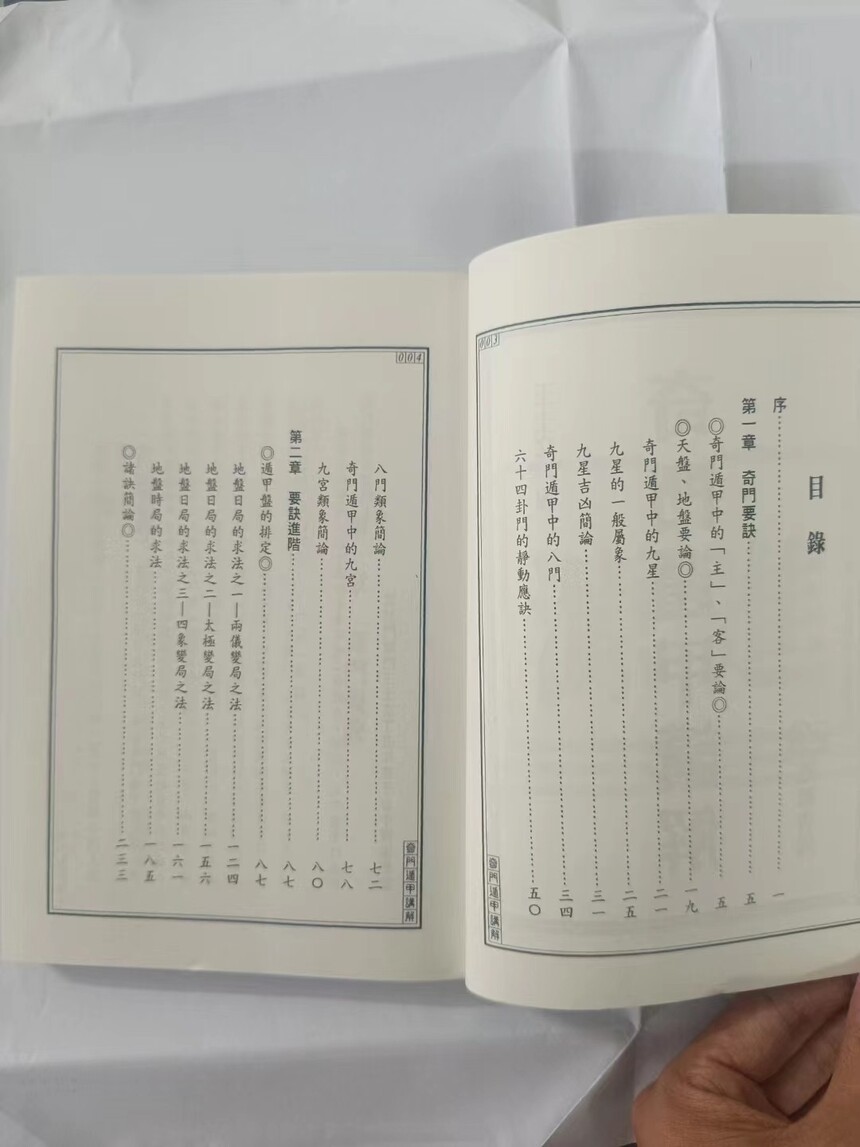 003
目錄
序⋯⋯⋯⋯⋯⋯一
第一章 奇門要訣⋯⋯⋯⋯⋯⋯五
◎奇門遁甲中的「主」、「客」要論◎⋯⋯⋯⋯⋯⋯五
◎天盤、地盤要論◎⋯⋯⋯⋯⋯⋯一九
奇門遁甲中的九星⋯⋯⋯⋯⋯⋯二一
九星的一般屬象⋯⋯⋯⋯⋯⋯二五
九星吉凶簡論⋯⋯⋯⋯⋯⋯三一
奇門遁甲中的八門⋯⋯⋯⋯⋯⋯三四
六十四卦門的靜動應訣⋯⋯⋯⋯⋯⋯五〇
奇門遁甲講解
004
八門類象簡論⋯⋯⋯⋯⋯⋯七二
奇門遁甲中的九宮⋯⋯⋯⋯⋯⋯七八
九宮類象簡論⋯⋯⋯⋯⋯⋯八〇
第二章 要訣進階⋯⋯⋯⋯⋯⋯八七
◎遁甲盤的排定◎⋯⋯⋯⋯⋯⋯八七
地盤日局的求法之一—兩儀變局之法⋯⋯⋯⋯⋯⋯一二四
地盤日局的求法之二—太極變局之法⋯⋯⋯⋯⋯⋯一五六
地盤日局的求法之三—四象變局之法⋯⋯⋯⋯⋯⋯一六一
地盤時局的求法⋯⋯⋯⋯⋯⋯一八五
◎諸訣簡論◎⋯⋯⋯⋯⋯⋯二三三
奇門遁甲講解